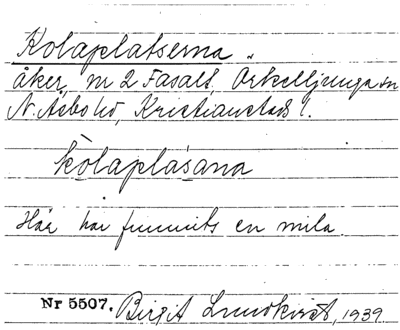 Kolaplatserna
åker, nr 2 Fasalt, Örkelljunga sn
N. Åsbo hd, Kristianstads l.
kolaplasana
Här har funnits en mila.
Nr 5507. Birgit Lundkvist, 1939.